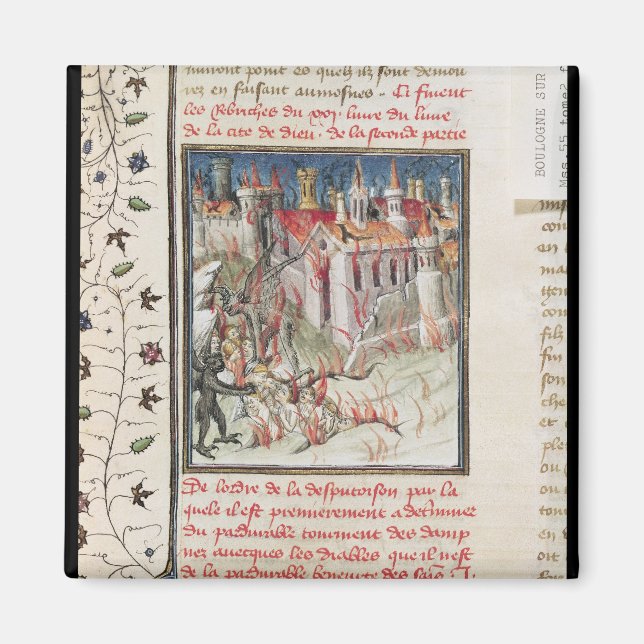 auront point es quelz ilz sont demou
rez en faisant aumosnes - Ci finent
les Rebriches du xxj. livre du livre
de la cite de dieu. de la seconde partie
De lordre de la desputoison par la
quele il est premierement a determiner
du pardurable tourment des damp
nez avecques les diables que il nest
de la pardurable beneurte des sains
BOULOGNE SUR
Mss.55 tome2
con
en
mai
con
filz
fui
son
che
et
ou
tour
en
oit